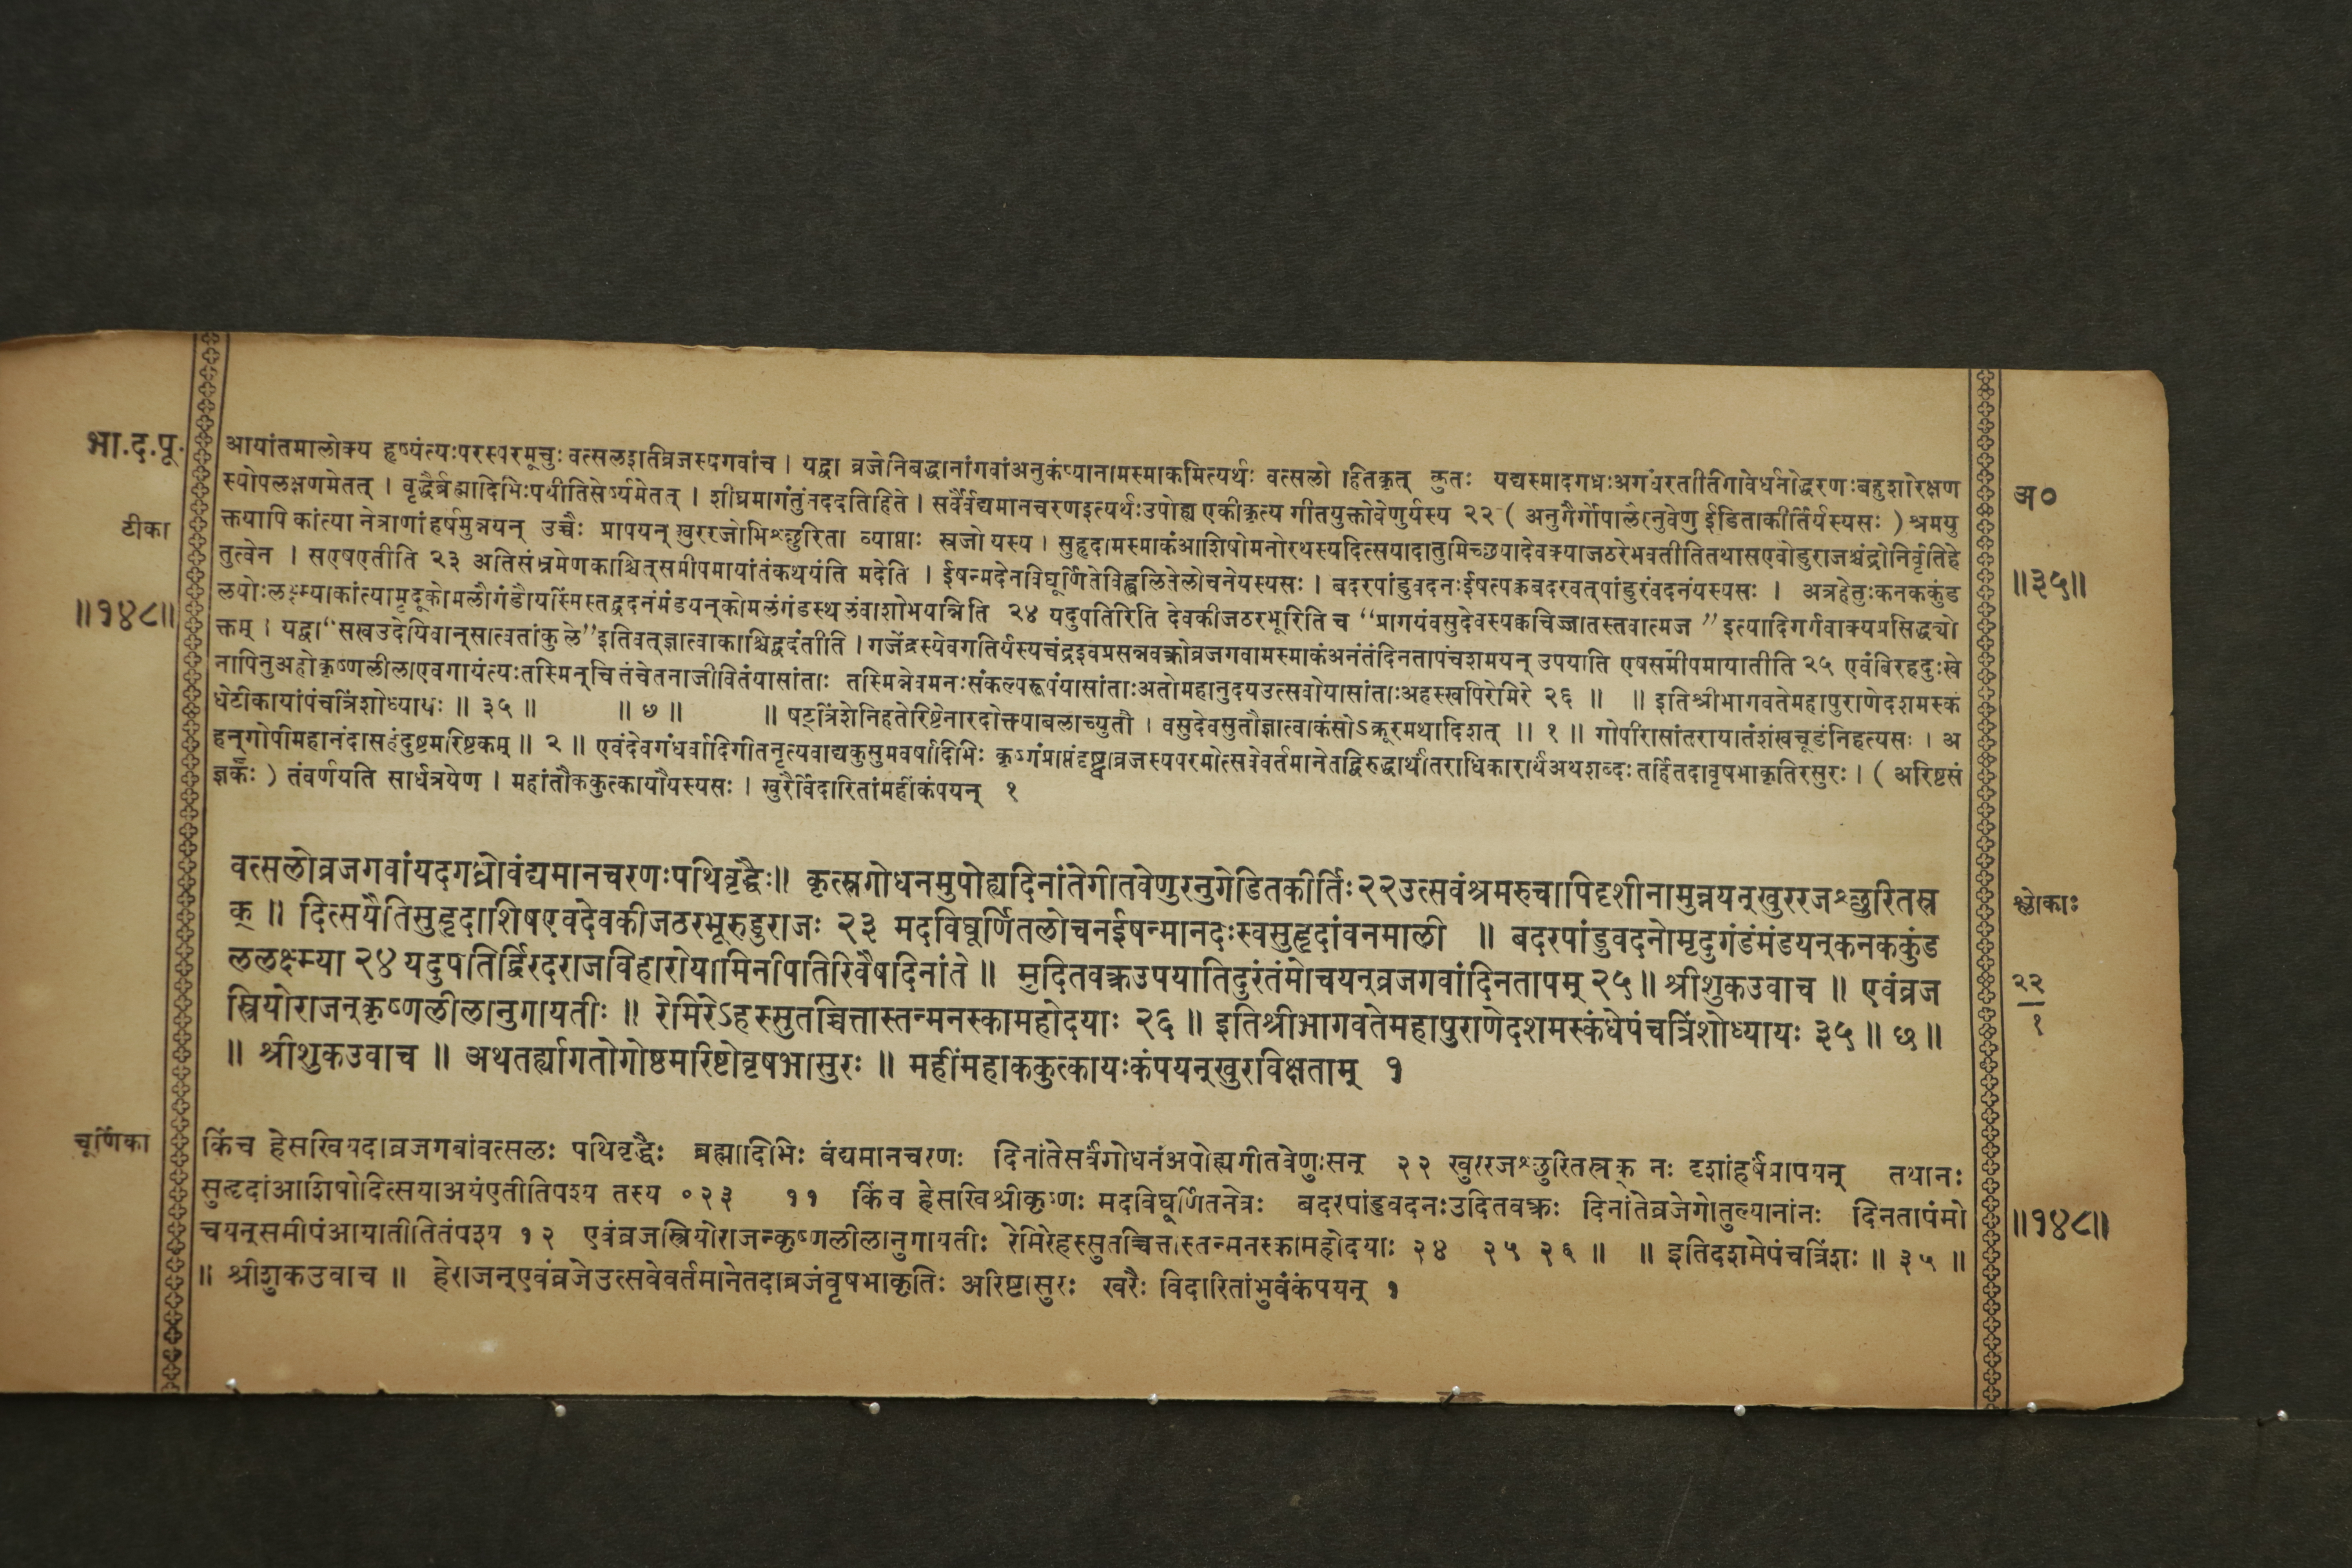 भा.द.पू.
टीका
॥१४८॥
आयांतमालोक्य हृष्यंत्यःपरस्परमूचुः वत्सलइतिव्रजस्यगवांच । यद्वा व्रजेनिबद्धानांगवांअनुकंप्यानामस्माकमित्यर्थः वत्सलो हितकृत् कुतः यद्यस्मादगध्रःअगंधरतीतिगोवर्धनोद्धरणःबहुशोरक्षण
स्योपलक्षणमेतत् । वृद्धैर्ब्रह्मादिभिःपथीतिसेर्ष्यमेतत् । शीघ्रमागंतुंनददतिहिते । सर्वैर्वंद्यमानचरणइत्यर्थःउपोह्य एकीकृत्य गीतयुक्तोवेणुर्यस्य २२ ( अनुगैर्गोपालैरनुवेणु ईडिताकीर्तिर्यस्यसः ) श्रमयु
क्तयापि कांत्या नेत्राणां हर्षमुन्नयन् उच्चैः प्रापयन् खुररजोभिश्छुरिता व्याप्ताः स्रजो यस्य । सुहृदामस्माकंआशिषोमनोरथस्यदित्सयादातुमिच्छयादेवक्याजठरेभवतीतितथासएवोडुराजश्चंद्रोनिर्वृतिहे
तुत्वेन । सएषएतीति २३ अतिसंभ्रमेणकाश्चित्समीपमायांतंकथयंति मदेति । ईषन्मदेनविघूर्णितेविह्वलितेलोचनेयस्यसः । बदरपांडुवदनःईषत्पक्वबदरवत्पांडुरंवदनंयस्यसः । अत्रहेतुःकनककुंड
लयोःलक्ष्म्याकांत्यामृदूकोमलौगंडौयस्मिंस्तद्वदनंमंडयन्कोमलंगंडस्थलंवाशोभयान्निति २४ यदुपतिरिति देवकीजठरभूरिति च “प्रागयंवसुदेवस्यक्वचिज्जातस्तवात्मज ” इत्यादिगर्गवाक्यप्रसिद्ध्यो
क्तम् । यद्वा“सखउदेयिवान्सात्वतांकुले”इतिवत्ज्ञात्वाकाश्चिद्वदंतीति । गजेंद्रस्येवगतिर्यस्यचंद्रइवप्रसन्नवक्त्रोव्रजगवामस्माकंअनंतंदिनतापंचशमयन् उपयाति एषसमीपमायातीति २५ एवंविरहदुःखे
नापिनुअहोकृष्णलीलाएवगायंत्यःतस्मिन्चि तंचेतनाजीवितंयासांताः तस्मिन्नेवमनःसंकल्परूपंयासांताःअतोमहानुदयउत्सवोयासांताःअहस्स्वपिरेमिरे २६ ॥ ॥ इतिश्रीभागवतेमहापुराणेदशमस्कं
धेटीकायांपंचत्रिंशोध्यायः ॥ ३५ ॥ ॥ ७ ॥ ॥ षट्त्रिंशेनिहतेरिष्टेनारदोक्त्याबलाच्युतौ । वसुदेवसुतौज्ञात्वाकंसोऽक्रूरमथादिशत् ॥ १ ॥ गोपीरासांतरायातंशंखचूडंनिहत्यसः । अ
हन्गोपीमहानंदासहंदुष्टमरिष्टकम् ॥ २ ॥ एवंदेवगंधर्वादिगीतनृत्यवाद्यकुसुमवर्षादिभिः कृष्णंप्राप्तंदृष्ट्वाव्रजस्यपरमोत्सवेवर्तमानेतद्विरुद्धार्थांतराधिकारार्थंअथशब्दः तर्हितदावृषभाकृतिरसुरः । ( अरिष्टसं
ज्ञकः ) तंवर्णयति सार्धत्रयेण । महांतौककुत्कायौयस्यसः । खुरैर्विदारितांमहींकंपयन् १
अ०
॥३५॥
वत्सलोव्रजगवांयदगध्रोवंद्यमानचरणःपथिवृद्धैः॥ कृत्स्नगोधनमुपोह्यदिनांतेगीतवेणुरनुगेडितकीर्तिः२२उत्सवंश्रमरुचापिदृशीनामुन्नयन्खुररजश्छुरितस्र
क् ॥ दित्सयैतिसुहृदाशिषएवदेवकीजठरभूरुडुराजः २३ मदविघूर्णितलोचनईषन्मानदःस्वसुहृदांवनमाली ॥ बदरपांडुवदनोमृदुगंडंमंडयन्कनककुंड
ललक्ष्म्या २४ यदुपतिर्द्विरदराजविहारोयामिनीपतिरिवैषदिनांते ॥ मुदितवक्त्रउपयातिदुरंतंमोचयन्व्रजगवांदिनतापम् २५॥ श्रीशुकउवाच ॥ एवंव्रज
स्त्रियोराजन्कृष्णलीलानुगायतीः ॥ रेमिरेऽहस्सुतच्चित्तास्तन्मनस्कामहोदयाः २६ ॥ इतिश्रीभागवतेमहापुराणेदशमस्कंधेपंचत्रिंशोध्यायः ३५ ॥ छ ॥
॥ श्रीशुकउवाच ॥ अथतर्ह्यागतोगोष्ठमरिष्टोवृषभासुरः ॥ महींमहाककुत्कायःकंपयन्खुरविक्षताम् १
श्लोकाः
२२
१
चूर्णिका
किंच हेसखियदाव्रजगवांवत्सलः पथिवृद्धैः ब्रह्मादिभिः वंद्यमानचरणः दिनांतेसर्वंगोधनंअपोह्यगीतवेणुःसन् २२ खुररजश्छुरितस्रक् नः दृशांहर्षंप्रापयन् तथानः
सुहृदांआशिषोदित्सयाअयंएतीतिपश्य तस्य ०२३ ११ किंच हेसखिश्रीकृष्णः मदविघूर्णितनेत्रः बदरपांडुवदनःउदितवक्त्रः दिनांतेव्रजेगोतुल्यानांनः दिनतापंमो
चयन्समीपंआयातीतितंपश्य १२ एवंव्रजस्त्रियोराजन्कृष्णलीलानुगायतीः रेमिरेहस्सुतच्चित्तास्तन्मनस्कामहोदयाः २४ २५ २६ ॥ ॥ इतिदशमेपंचत्रिंशः ॥ ३५ ॥
॥ श्रीशुकउवाच ॥ हेराजन्एवंव्रजेउत्सवेवर्तमानेतदाव्रजंवृषभाकृतिः अरिष्टासुरः खरैः विदारितांभुवंकंपयन् १
॥१४८॥